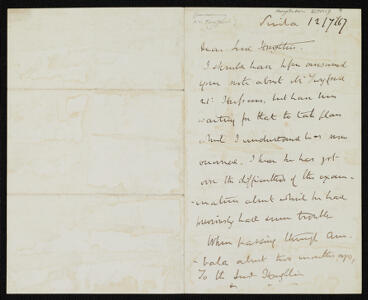 Simla 12/7/67
Dear Lord Houghton,
I should have before answered
your note about Mr
21st Hussars, but have been
waiting for that to take place
which I understand has now
occurred. I hear he has got
over the difficulties of the exam-
-ination about which he had
previously had some trouble
When passing through Um-
bala about two months ago,
To the Lord Houghton